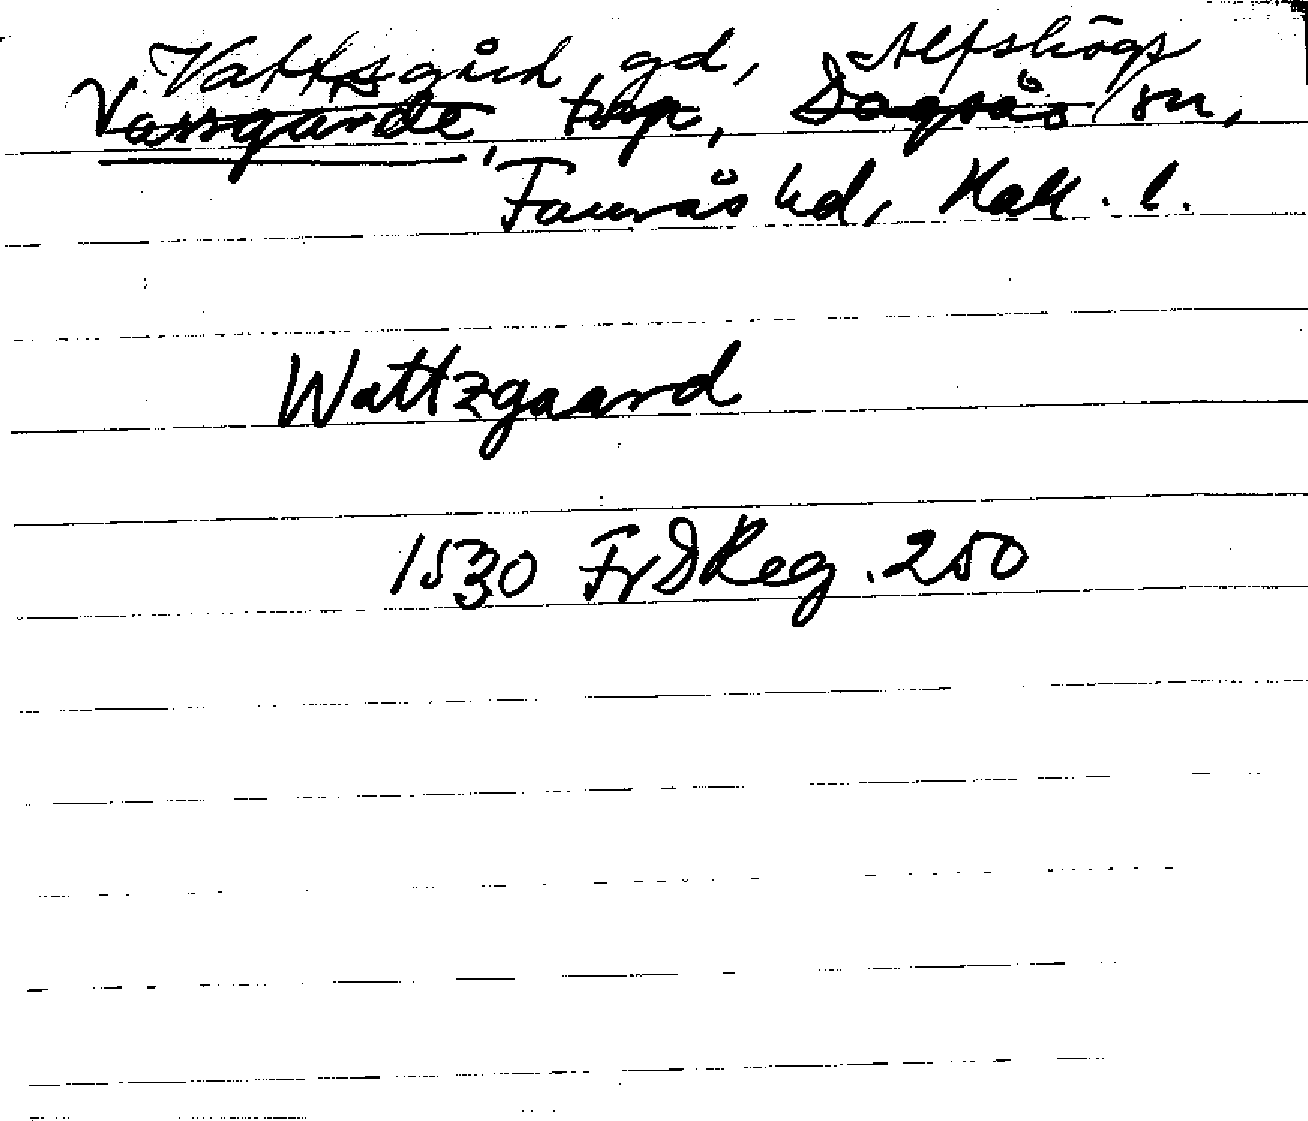 Vattsgård, gd, Alfshögs
Vassgärde, torp, Dagsås sn,
Faurås hd, Hall. l.
Wattzgaard
1530 FrDReg. 250